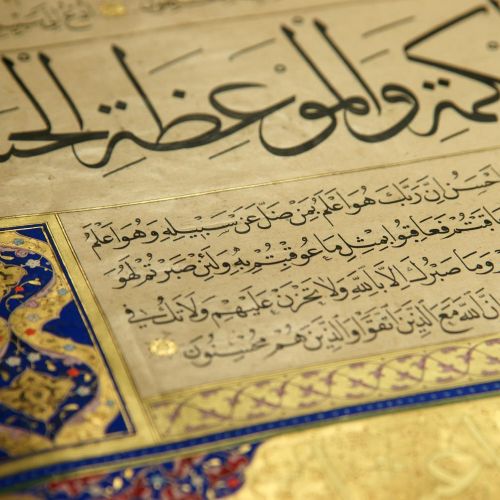 وَالْمَوْعِظَةِ
اَحْسَنُ اِنَّ رَبَّكَ هُوَ اَعْلَمُ بِمَنْ ضَلَّ عَنْ سَبِيلِهِ وَهُوَ اَعْلَمُ
فَعَاقِبُوا بِمِثْلِ مَا عُوقِبْتُمْ بِهِ وَلَئِنْ صَبَرْتُمْ لَهُوَ
وَمَا صَبْرُكَ اِلَّا بِاللّٰهِ وَلَا تَحْزَنْ عَلَيْهِمْ وَلَا تَكُ فِي
اللّٰهَ مَعَ الَّذِينَ اتَّقَوْا وَالَّذِينَ هُمْ مُحْسِنُونَ